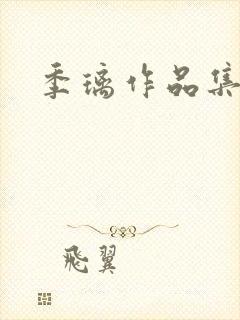 季璃作品集
飛翼